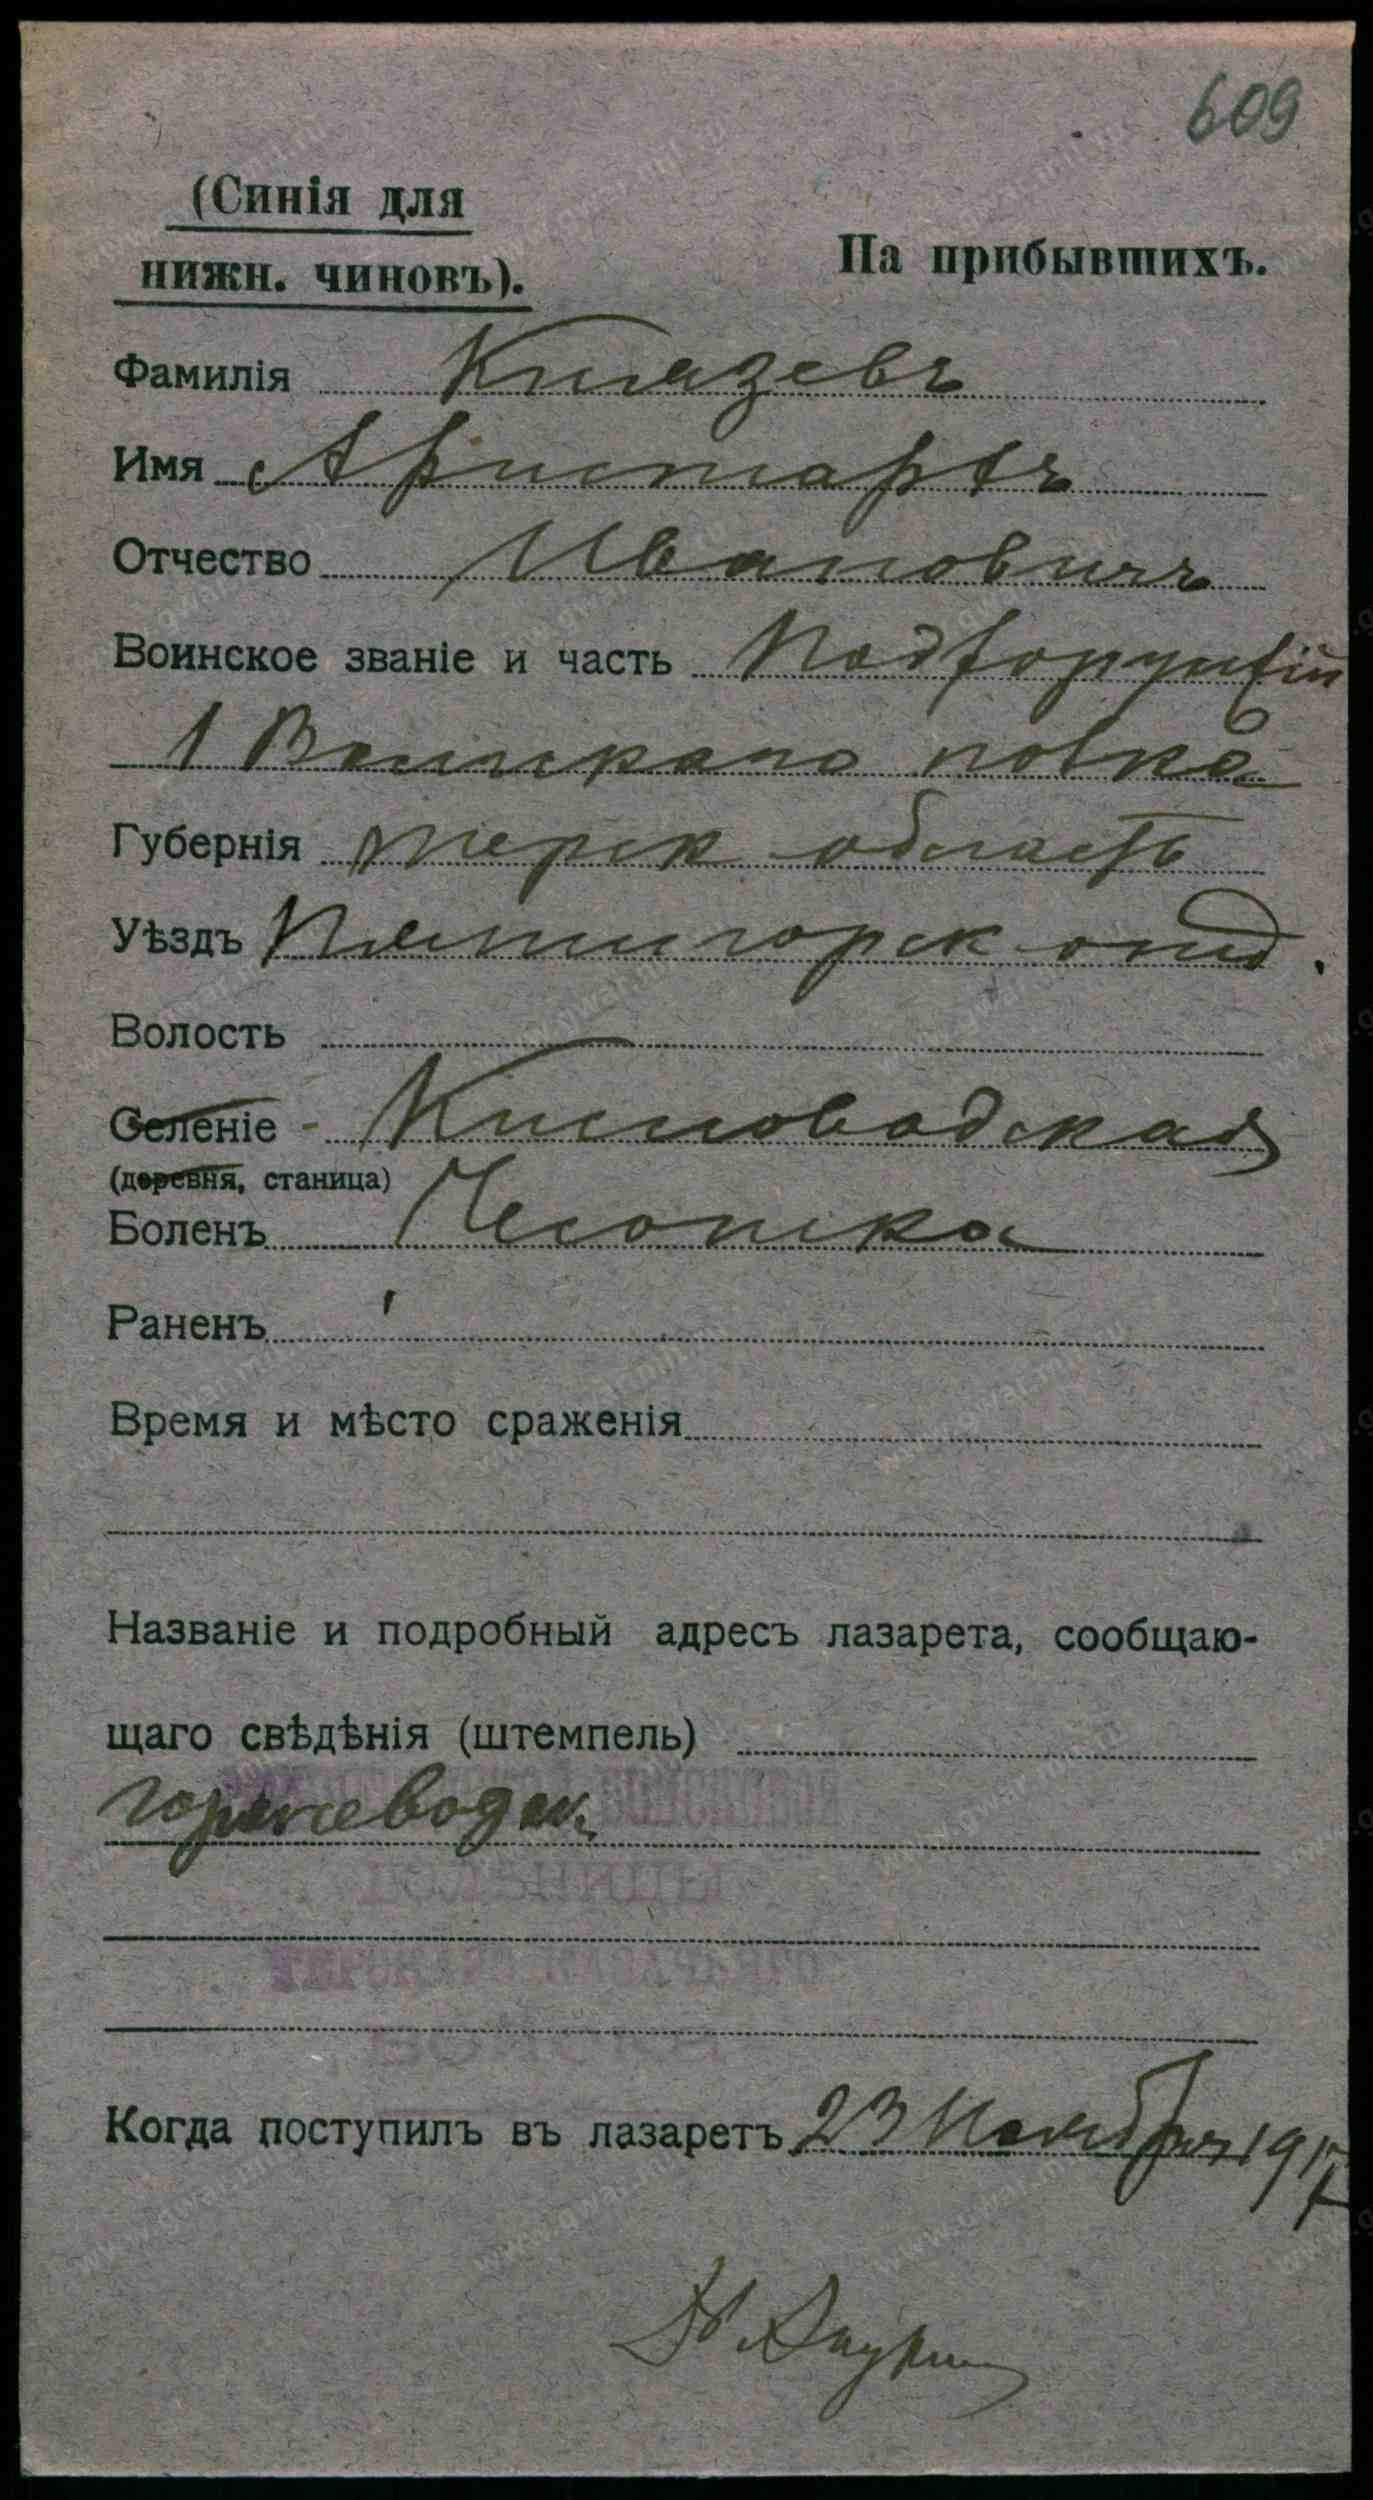 609
(Синія для
нижн. чиновъ).
На прибывшихъ.
Фамилія Князевъ
Имя Аристархъ
Отчество Ивановичъ
Воинское званіе и часть Подхорунжій
1 Волгскаго полка
Губернія Терск область
Уѣздъ Пятигорск отд.
Волость
Селеніе - Кисловодская
(деревня, станица)
Боленъ Чесотка
Раненъ
Время и мѣсто сраженія
Названіе и подробный адресъ лазарета, сообщаю-
щаго свѣдѣнія (штемпель)
Горячеводск.
Когда поступилъ въ лазаретъ 23 Ноября 1917